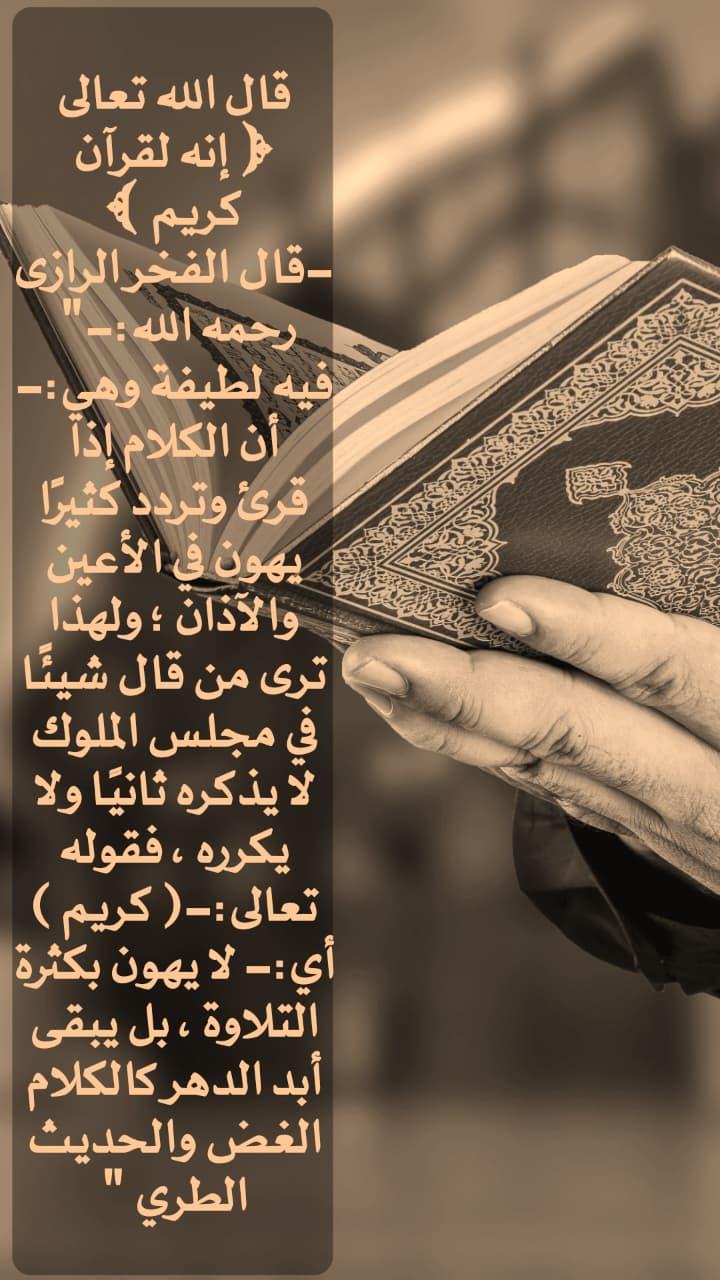 قال الله تعالى
﴿ إنه لقرآن
كريم ﴾
-قال الفخر الرازى
رحمه الله :-"
فيه لطيفة وهي :-
أن الكلام إذا
قرئ وتردد كثيرًا
يهون في الأعين
والآذان ؛ ولهذا
ترى من قال شيئًا
في مجلس الملوك
لا يذكره ثانيًا ولا
يكرره ، فقوله
تعالى :-( كريم )
أي :- لا يهون بكثرة
التلاوة ، بل يبقى
أبد الدهر كالكلام
الغض والحديث
الطري "